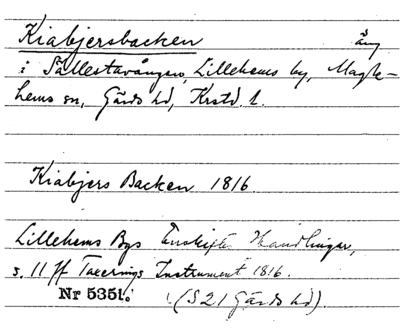 Kiabjersbacken äng
i Sällestavången, Lillehems by, Magle-
hems sn, Gärds hd, Krstd. l.
Kiabjers Backen 1816
Lillehems Bys Enskifte Handlingar,
s. 11 ff Taxerings Instrument 1816.
Nr 5351. (S 21 Gärds hd).